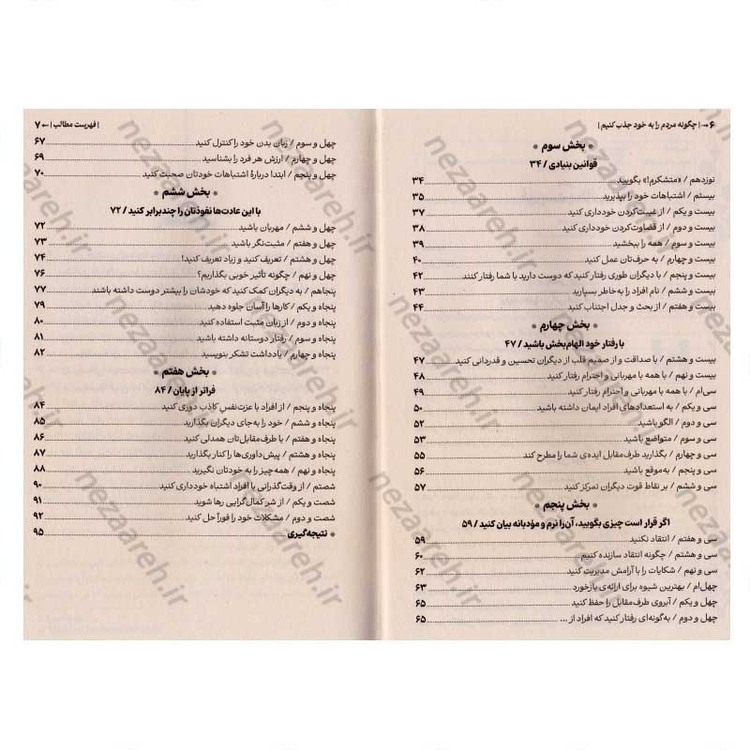 ۶ → | چگونه مردم را به خود جذب کنیم |
● بخش سوم ●
قوانین بنیادی / ۳۴
نوزدهم / «متشکرم!» بگویید ۳۴
بیستم / اشتباهات خود را بپذیرید ۳۵
بیست و یکم / از غیبت‌کردن خودداری کنید ۳۷
بیست و دوم / از قضاوت‌کردن خودداری کنید ۳۸
بیست و سوم / همه را ببخشید ۳۹
بیست و چهارم / به حرف‌تان عمل کنید ۴۰
بیست و پنجم / با دیگران طوری رفتار کنید که دوست دارید با شما رفتار کنند ۴۲
بیست و ششم / نام افراد را به‌خاطر بسپارید ۴۳
بیست و هفتم / از بحث و جدل اجتناب کنید ۴۴
● بخش چهارم ●
با رفتار خود الهام‌بخش باشید / ۴۷
بیست و هشتم / با صداقت و از صمیم قلب از دیگران تحسین و قدردانی کنید ۴۷
بیست و نهم / با همه با مهربانی و احترام رفتار کنید ۴۸
سی‌ام / با همه با مهربانی و احترام رفتار کنید ۴۹
سی و یکم / به استعدادهای افراد ایمان داشته باشید ۵۰
سی و دوم / الگو باشید ۵۲
سی و سوم / متواضع باشید ۵۳
سی و چهارم / بگذارید طرف‌مقابل ایده‌ی شما را مطرح کند ۵۵
سی و پنجم / به‌موقع باشید ۵۶
سی و ششم / بر نقاط قوت دیگران تمرکز کنید ۵۷
● بخش پنجم ●
اگر قرار است چیزی بگویید، آن‌را نرم و مؤدبانه بیان کنید / ۵۹
سی و هفتم / انتقاد نکنید ۵۹
سی و هشتم / چگونه انتقاد سازنده کنیم ۶۰
سی و نهم / شکایات را با آرامش مدیریت کنید ۶۲
چهل‌ام / بهترین شیوه برای ارائه‌ی بازخورد ۶۳
چهل و یکم / آبروی طرف‌مقابل را حفظ کنید ۶۵
چهل و دوم / به‌گونه‌ای رفتار کنید که افراد از ... ۶۵
| فهرست مطالب | ← ۷
چهل و سوم / زبان بدن خود را کنترل کنید ۶۷
چهل و چهارم / ارزش هر فرد را بشناسید ۶۹
چهل و پنجم / ابتدا دربارهٔ اشتباهات خودتان صحبت کنید ۷۰
● بخش ششم ●
با این عادت‌ها نفوذتان را چندبرابر کنید / ۷۲
چهل و ششم / مهربان باشید ۷۲
چهل و هفتم / مثبت‌نگر باشید ۷۳
چهل و هشتم / تعریف کنید و زیاد تعریف کنید! ۷۴
چهل و نهم / چگونه تأثیر خوبی بگذاریم؟ ۷۶
پنجاهم / به دیگران کمک کنید که خودشان را بیشتر دوست داشته باشند ۷۷
پنجاه و یکم / کارها را آسان جلوه دهید ۷۹
پنجاه و دوم / از زبان مثبت استفاده کنید ۸۰
پنجاه و سوم / رفتار دوستانه داشته باشید ۸۱
پنجاه و چهارم / یادداشت تشکر بنویسید ۸۲
● بخش هفتم ●
فراتر از پایان / ۸۴
پنجاه و پنجم / از افراد با عزت‌نفسِ کاذب دوری کنید ۸۴
پنجاه و ششم / خود را به‌جای دیگران بگذارید ۸۵
پنجاه و هفتم / با طرف‌مقابل‌تان همدلی کنید ۸۶
پنجاه و هشتم / پیش‌داوری‌ها را کنار بگذارید ۸۷
پنجاه و نهم / همه‌چیز را به خودتان نگیرید ۸۸
شصتم / از وقت‌گذرانی با افراد اشتباه خودداری کنید ۹۰
شصت و یکم / از شر کمال‌گرایی رها شوید ۹۱
شصت و دوم / مشکلات خود را فوراً حل کنید ۹۲
● نتیجه‌گیری ۹۵
nezaareh.ir
nezaareh.ir
nezaareh.ir
nezaareh.ir
nezaareh.ir
nezaareh.ir